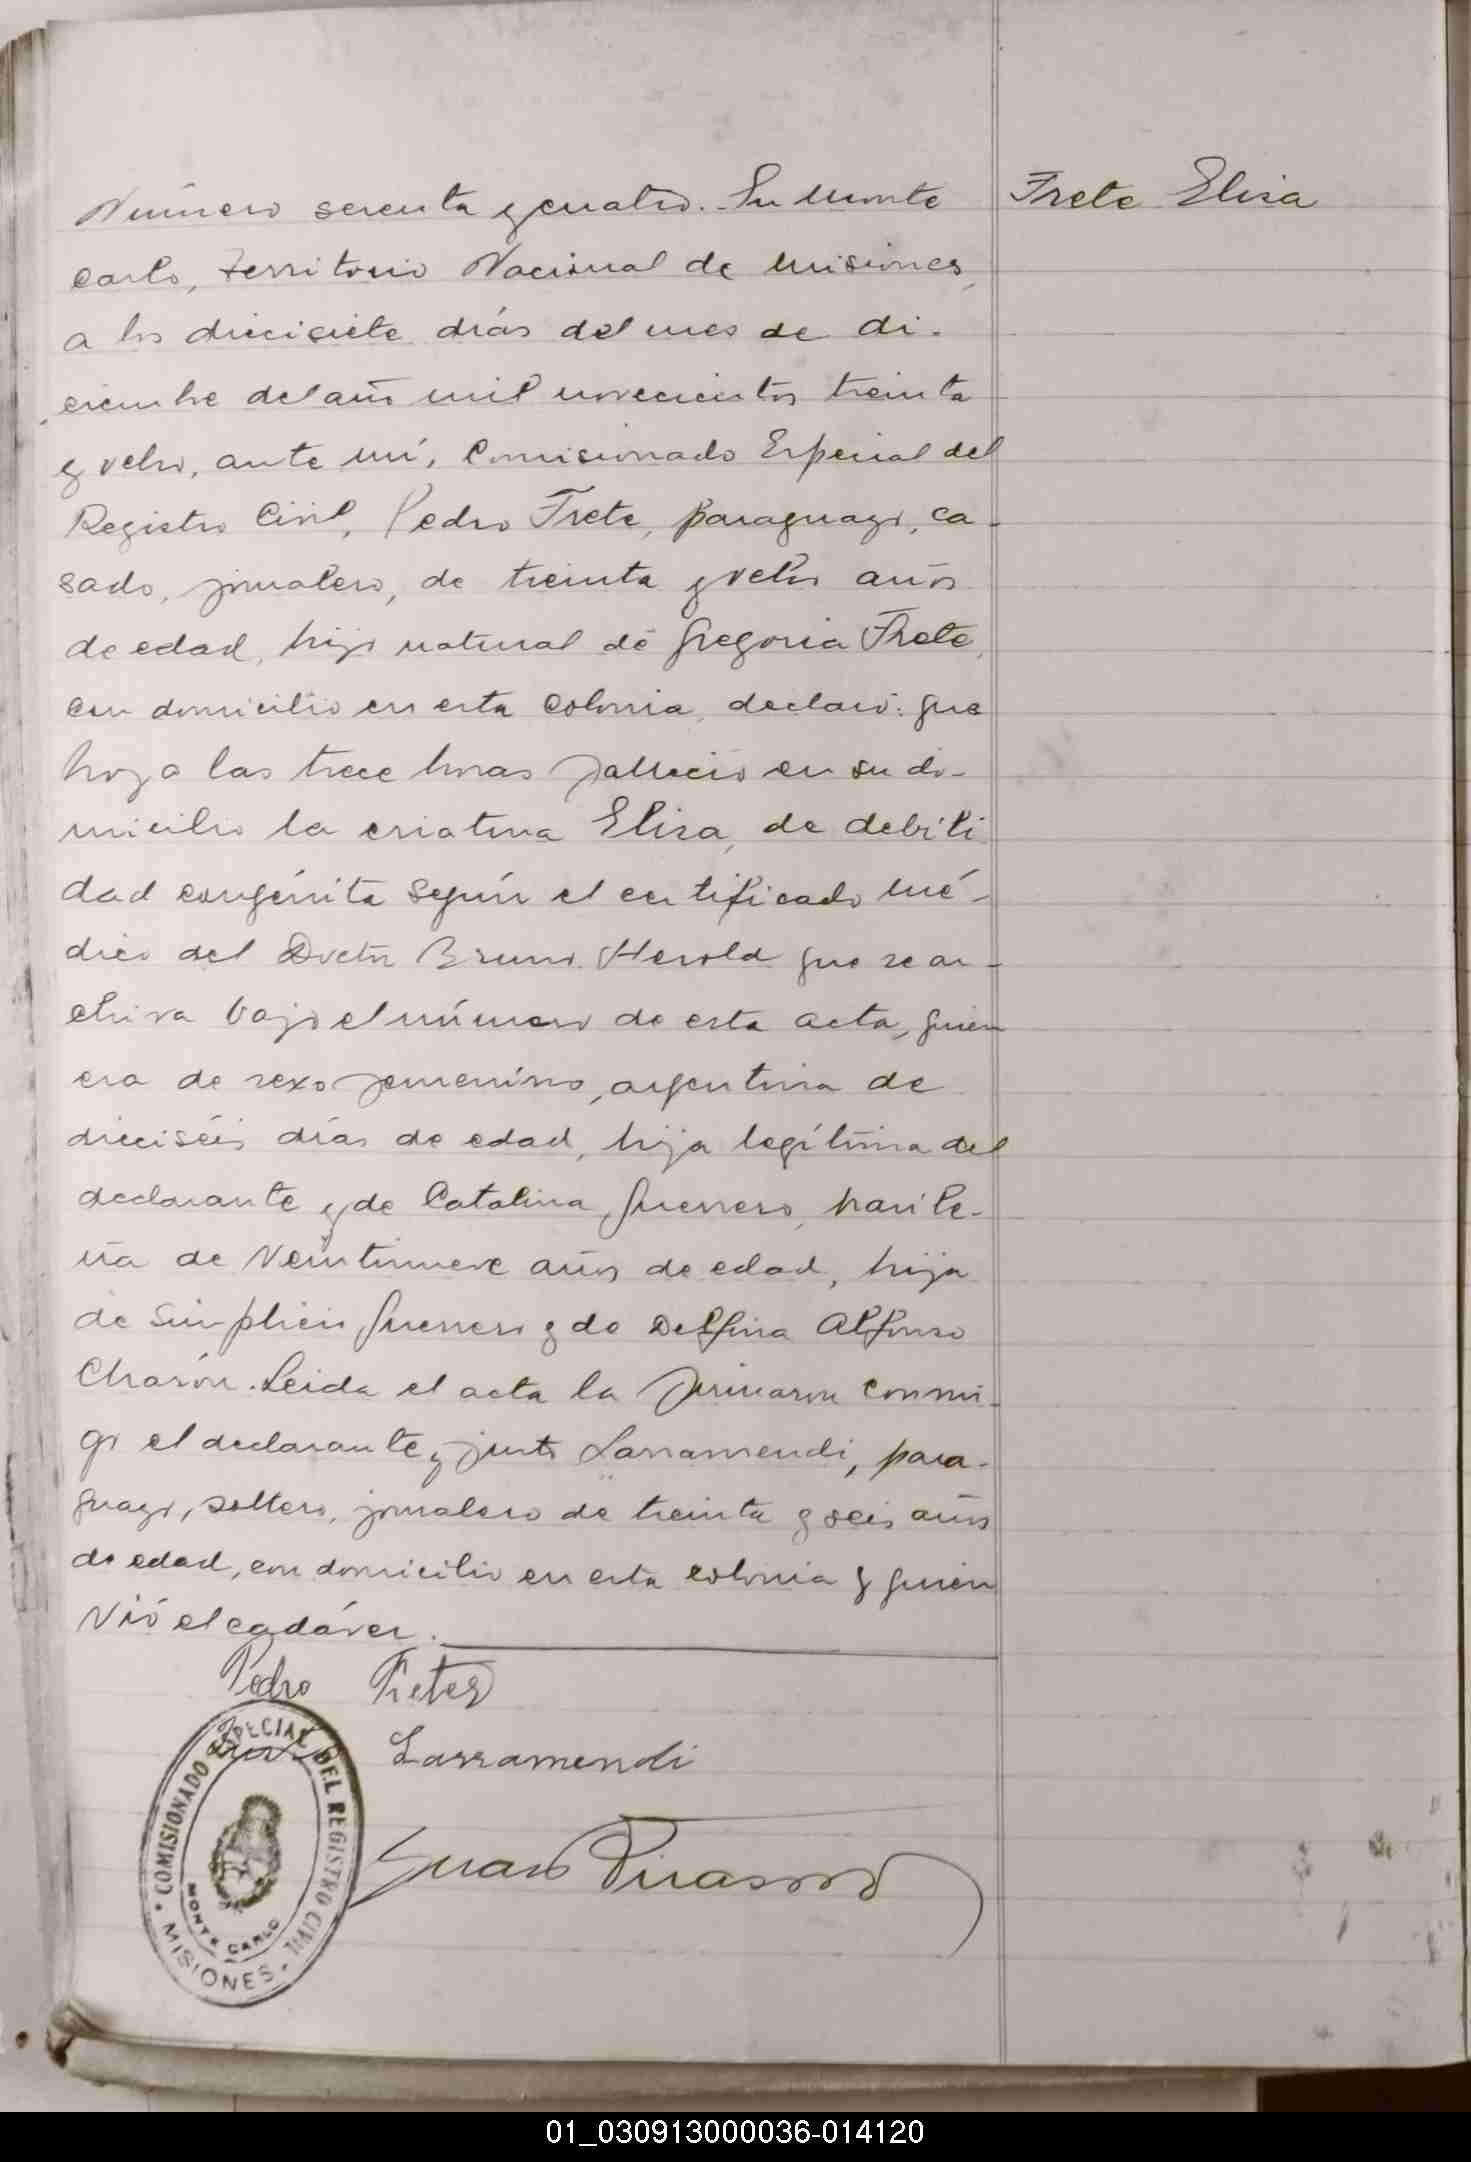 Número sesenta y cuatro. En Monte
Carlo, Territorio Nacional de Misiones,
a los diecisiete días del mes de di-
ciembre del año mil novecientos treinta
y ocho, ante mí, Comisionado Especial del
Registro Civil, Pedro Frete, paraguayo, ca-
sado, jornalero, de treinta y ocho años
de edad, hijo natural de Gregoria Frete,
con domicilio en esta colonia, declaró: que
hoy a las trece horas falleció en su do-
micilio la criatura Elisa, de debili
dad congénita según el certificado mé-
dico del Doctor Bruno Herold que se ar-
chiva bajo el número de esta acta, quien
era de sexo femenino, argentina de
dieciséis días de edad, hija legítima del
declarante y de Catalina Guerrero, brasile-
ña de veintinueve años de edad, hija
de Simplicio Guerrero y de Delfina Alfonso
Leida el acta la firmaron conmi-
go el declarante y Justo Larramendi, para-
guayo, soltero, jornalero de treinta y seis años
de edad, con domicilio en esta colonia y quien
vió el cadáver.
Frete Elisa
Pedro Fretes
Larramendi
Juan
COMISIONADO ESPECIAL DEL REGISTRO CIVIL
MONTE CARLO
MISIONES
01_030913000036-014120